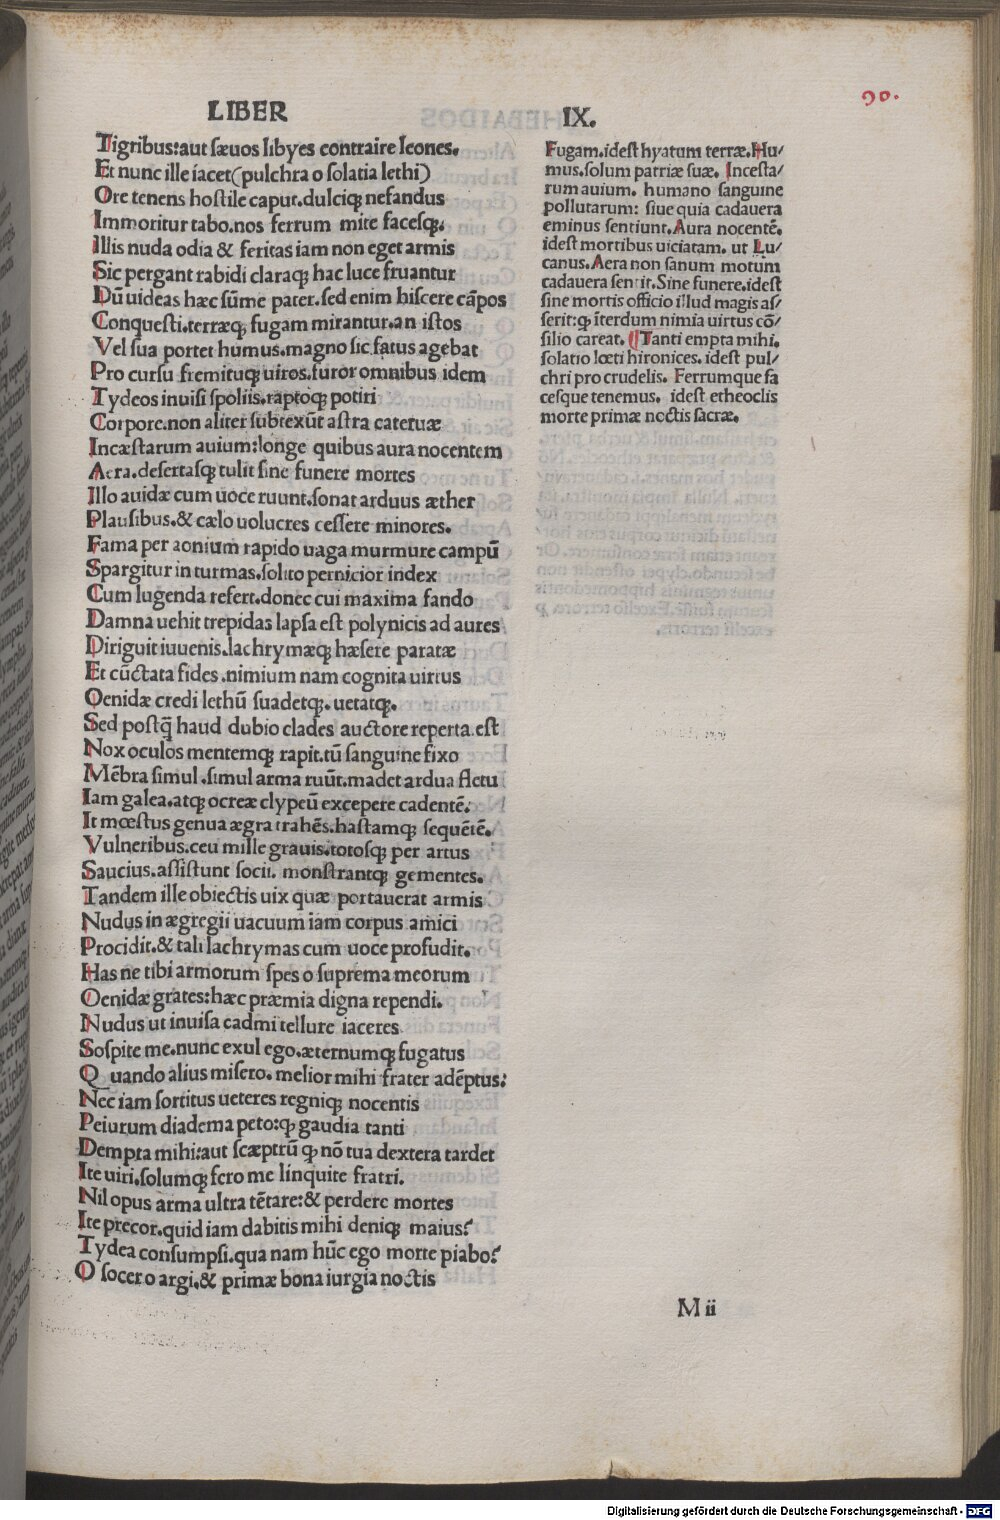 LIBER IX.
90.
Tigribus:aut sæuos libyes contraire leones.
Et nunc ille iacet(pulchra o solatia lethi)
Ore tenens hostile caput.dulciqꝫ nefandus
Immoritur tabo.nos ferrum mite facesqꝫ.
Illis nuda odia & feritas iam non eget armis
Sic pergant rabidi claraqꝫ hac luce fruantur
Dū uideas hæc sūme pater.sed enim hiscere cāpos
Conquesti.terræqꝫ fugam mirantur.an istos
Vel sua portet humus.magno sic fatus agebat
Pro cursu fremituqꝫ uiros.furor omnibus idem
Tydeos inuisi spoliis.raptoqꝫ potiri
Corpore.non aliter subtexūt astra cateruæ
Incæstarum auium:longe quibus aura nocentem
Aera.desertasqꝫ tulit sine funere mortes
Illo auidæ cum uoce ruunt.sonat arduus æther
Plausibus.& cælo uolucres cessere minores.
Fama per aonium rapido uaga murmure campū
Spargitur in turmas.solito pernicior index
Cum lugenda refert.donec cui maxima fando
Damna uehit trepidas lapsa est polynicis ad aures
Diriguit iuuenis.lachrymæqꝫ hæsere paratæ
Et cūctata fides.nimium nam cognita uirtus
Oenidæ credi lethū suadetqꝫ.uetatqꝫ.
Sed postq̄ haud dubio clades auctore reperta est
Nox oculos mentemqꝫ rapit.tū sanguine fixo
Mēbra simul.simul arma ruūt.madet ardua fletu
Iam galea.atqꝫ ocreæ clypeū excepere cadentē.
It mœstus genua ægra trahēs.hastamqꝫ sequētē.
Vulneribus.ceu mille grauis.totosqꝫ per artus
Saucius.assistunt socii. monstrantqꝫ gementes.
Tandem ille obiectis uix quæ portauerat armis
Nudus in ægregii uacuum iam corpus amici
Procidit.& tali lachrymas cum uoce profudit.
Has ne tibi armorum spes o suprema meorum
Oenidæ grates:hæc præmia digna rependi.
Nudus ut inuisa cadmi tellure iaceres
Sospite me.nunc exul ego.æternumqꝫ fugatus
Quando alius misero. melior mihi frater adēptus:
Nec iam sortitus ueteres regniqꝫ nocentis
Peiurum diadema peto:qꝫ gaudia tanti
Dempta mihi:aut scæptrū qꝫ nō tua dextera tardet
Ite uiri.solumqꝫ fero me linquite fratri.
Nil opus arma ultra tētare:& perdere mortes
Ite precor.quid iam dabitis mihi deniqꝫ maius?
Tydea consumpsi.qua nam hūc ego morte piabo?
O socer o argi.& primæ bona iurgia noctis
Fugam.idest hyatum terræ.Hu/
mus.solum patriæ suæ. Incesta/
rum auium. humano sanguine
pollutarum: siue quia cadauera
eminus sentiunt.Aura nocentē.
idest mortibus uiciatam. ut Lu/
canus.Aera non sanum motum
cadauera sentit.Sine funere.idest
sine mortis officio illud magis as/
serit:qꝫ īterdum nimia uirtus cō/
silio careat. ¶Tanti empta mihi.
solatio lœti hironices. idest pul/
chri pro crudelis. Ferrumque fa
cesque tenemus. idest etheoclis
morte primæ noctis sacræ.
M ii
Digitalisierung gefördert durch die Deutsche Forschungsgemeinschaft - DFG